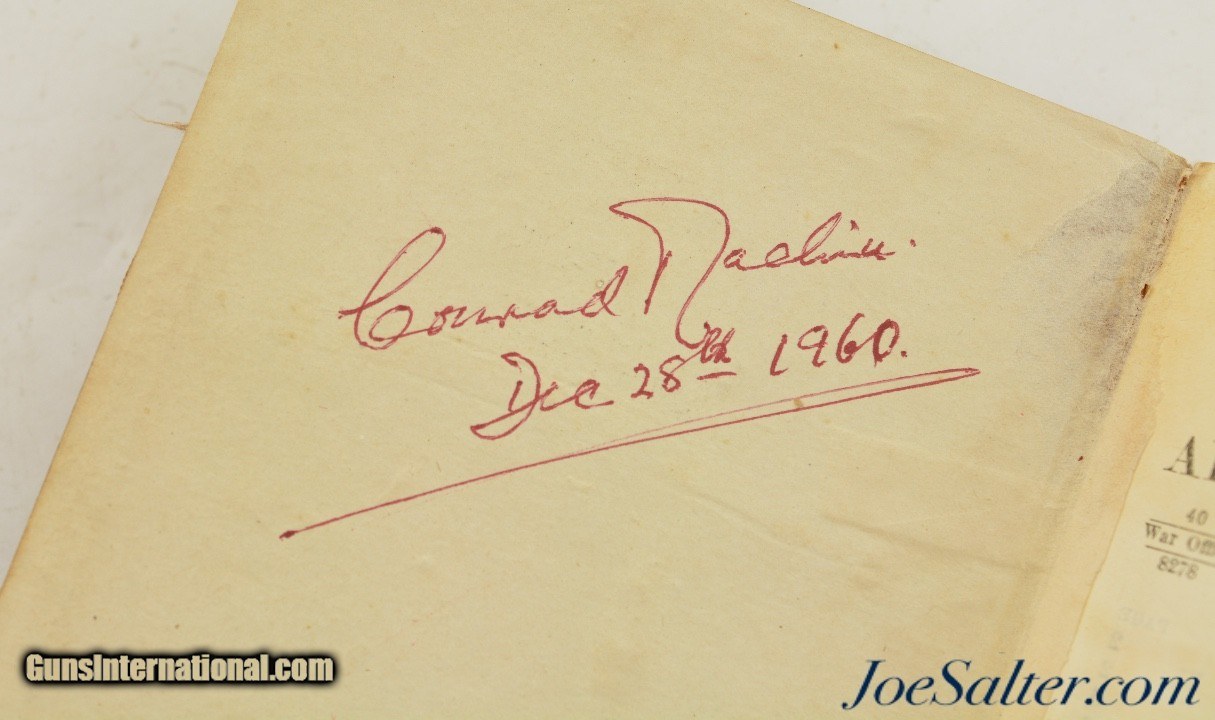 Conrad
Dec 28th 1960.
40
War Off
8278
GunsInternational.com
JoeSalter.com